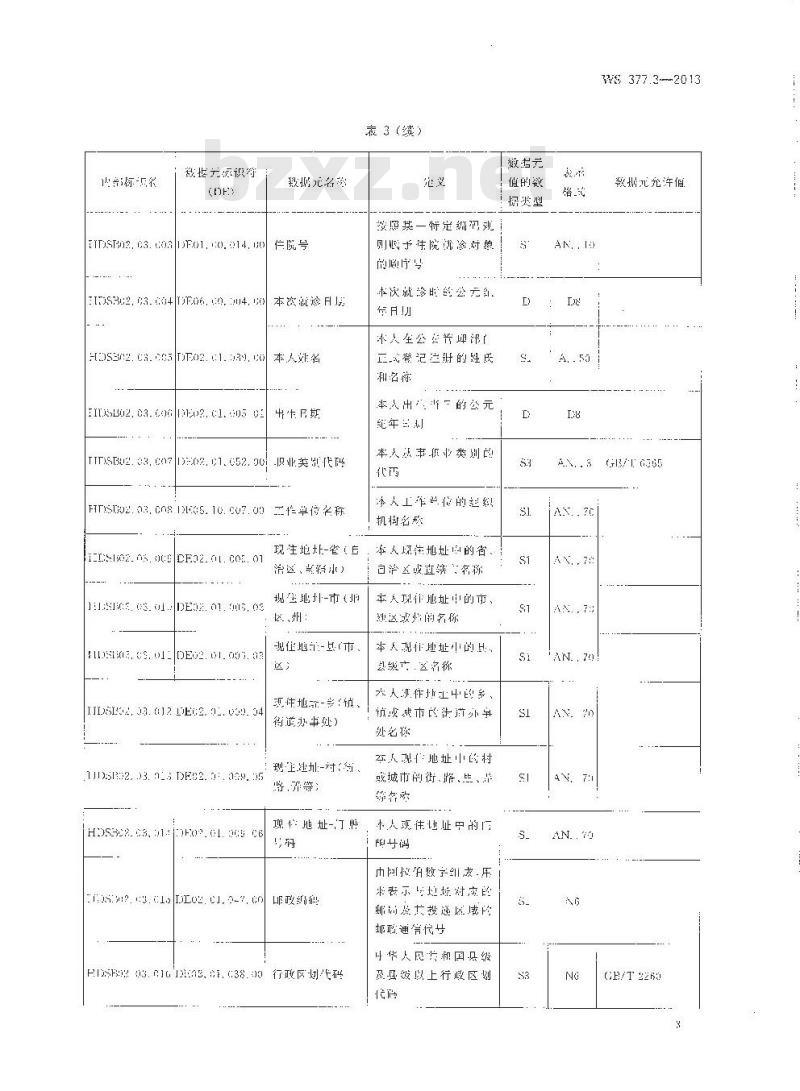 WS 377.3—2013
表 3 (续)
内部标识符 数据元标识符(DE) 数据元名称 定义 数据元值的数据类型 表示格式 数据元允许值
HDSB02.03.003 DE01.00.014.00 住院号 按照某一特定编码规则赋予住院就诊对象的顺序号 S1 AN..10
HDSB02.03.004 DE06.00.004.00 本次就诊日期 本次就诊时的公元纪年日期 D D8
HDSB02.03.005 DE02.01.039.00 本人姓名 本人在公安管理部门正式登记注册的姓氏和名称 S1 A..50
HDSB02.03.006 DE02.01.005.01 出生日期 本人出生当日的公元纪年日期 D D8
HDSB02.03.007 DE02.01.052.00 职业类别代码 本人从事职业类别的代码 S3 AN..3 GB/T 6565
HDSB02.03.008 DE08.10.007.00 工作单位名称 本人工作单位的组织机构名称 S1 AN..70
HDSB02.03.009 DE02.01.009.01 现住地址-省(自治区、直辖市) 本人现住地址中的省、自治区或直辖市名称 S1 AN..70
HDSB02.03.010 DE02.01.009.02 现住地址-市(地区、州) 本人现住地址中的市、地区或州的名称 S1 AN..70
HDSB02.03.011 DE02.01.009.03 现住地址-县(市、区) 本人现住地址中的县、县级市、区名称 S1 AN..70
HDSB02.03.012 DE02.01.009.04 现住地址-乡(镇、街道办事处) 本人现住地址中的乡、镇或城市的街道办事处名称 S1 AN..70
HDSB02.03.013 DE02.01.009.05 现住地址-村(街、路、弄等) 本人现住地址中的村或城市的街、路、里、弄等名称 S1 AN..70
HDSB02.03.014 DE02.01.009.06 现住地址-门牌号码 本人现住地址中的门牌号码 S1 AN..70
HDSB02.03.015 DE02.01.047.00 邮政编码 由阿拉伯数字组成,用来表示与地址对应的邮局及其投递区域的邮政通信代号 S1 N6
HDSB02.03.016 DE02.01.038.00 行政区划代码 中华人民共和国县级及县级以上行政区划代码 S3 N6 GB/T 2260
3
bzxz.net